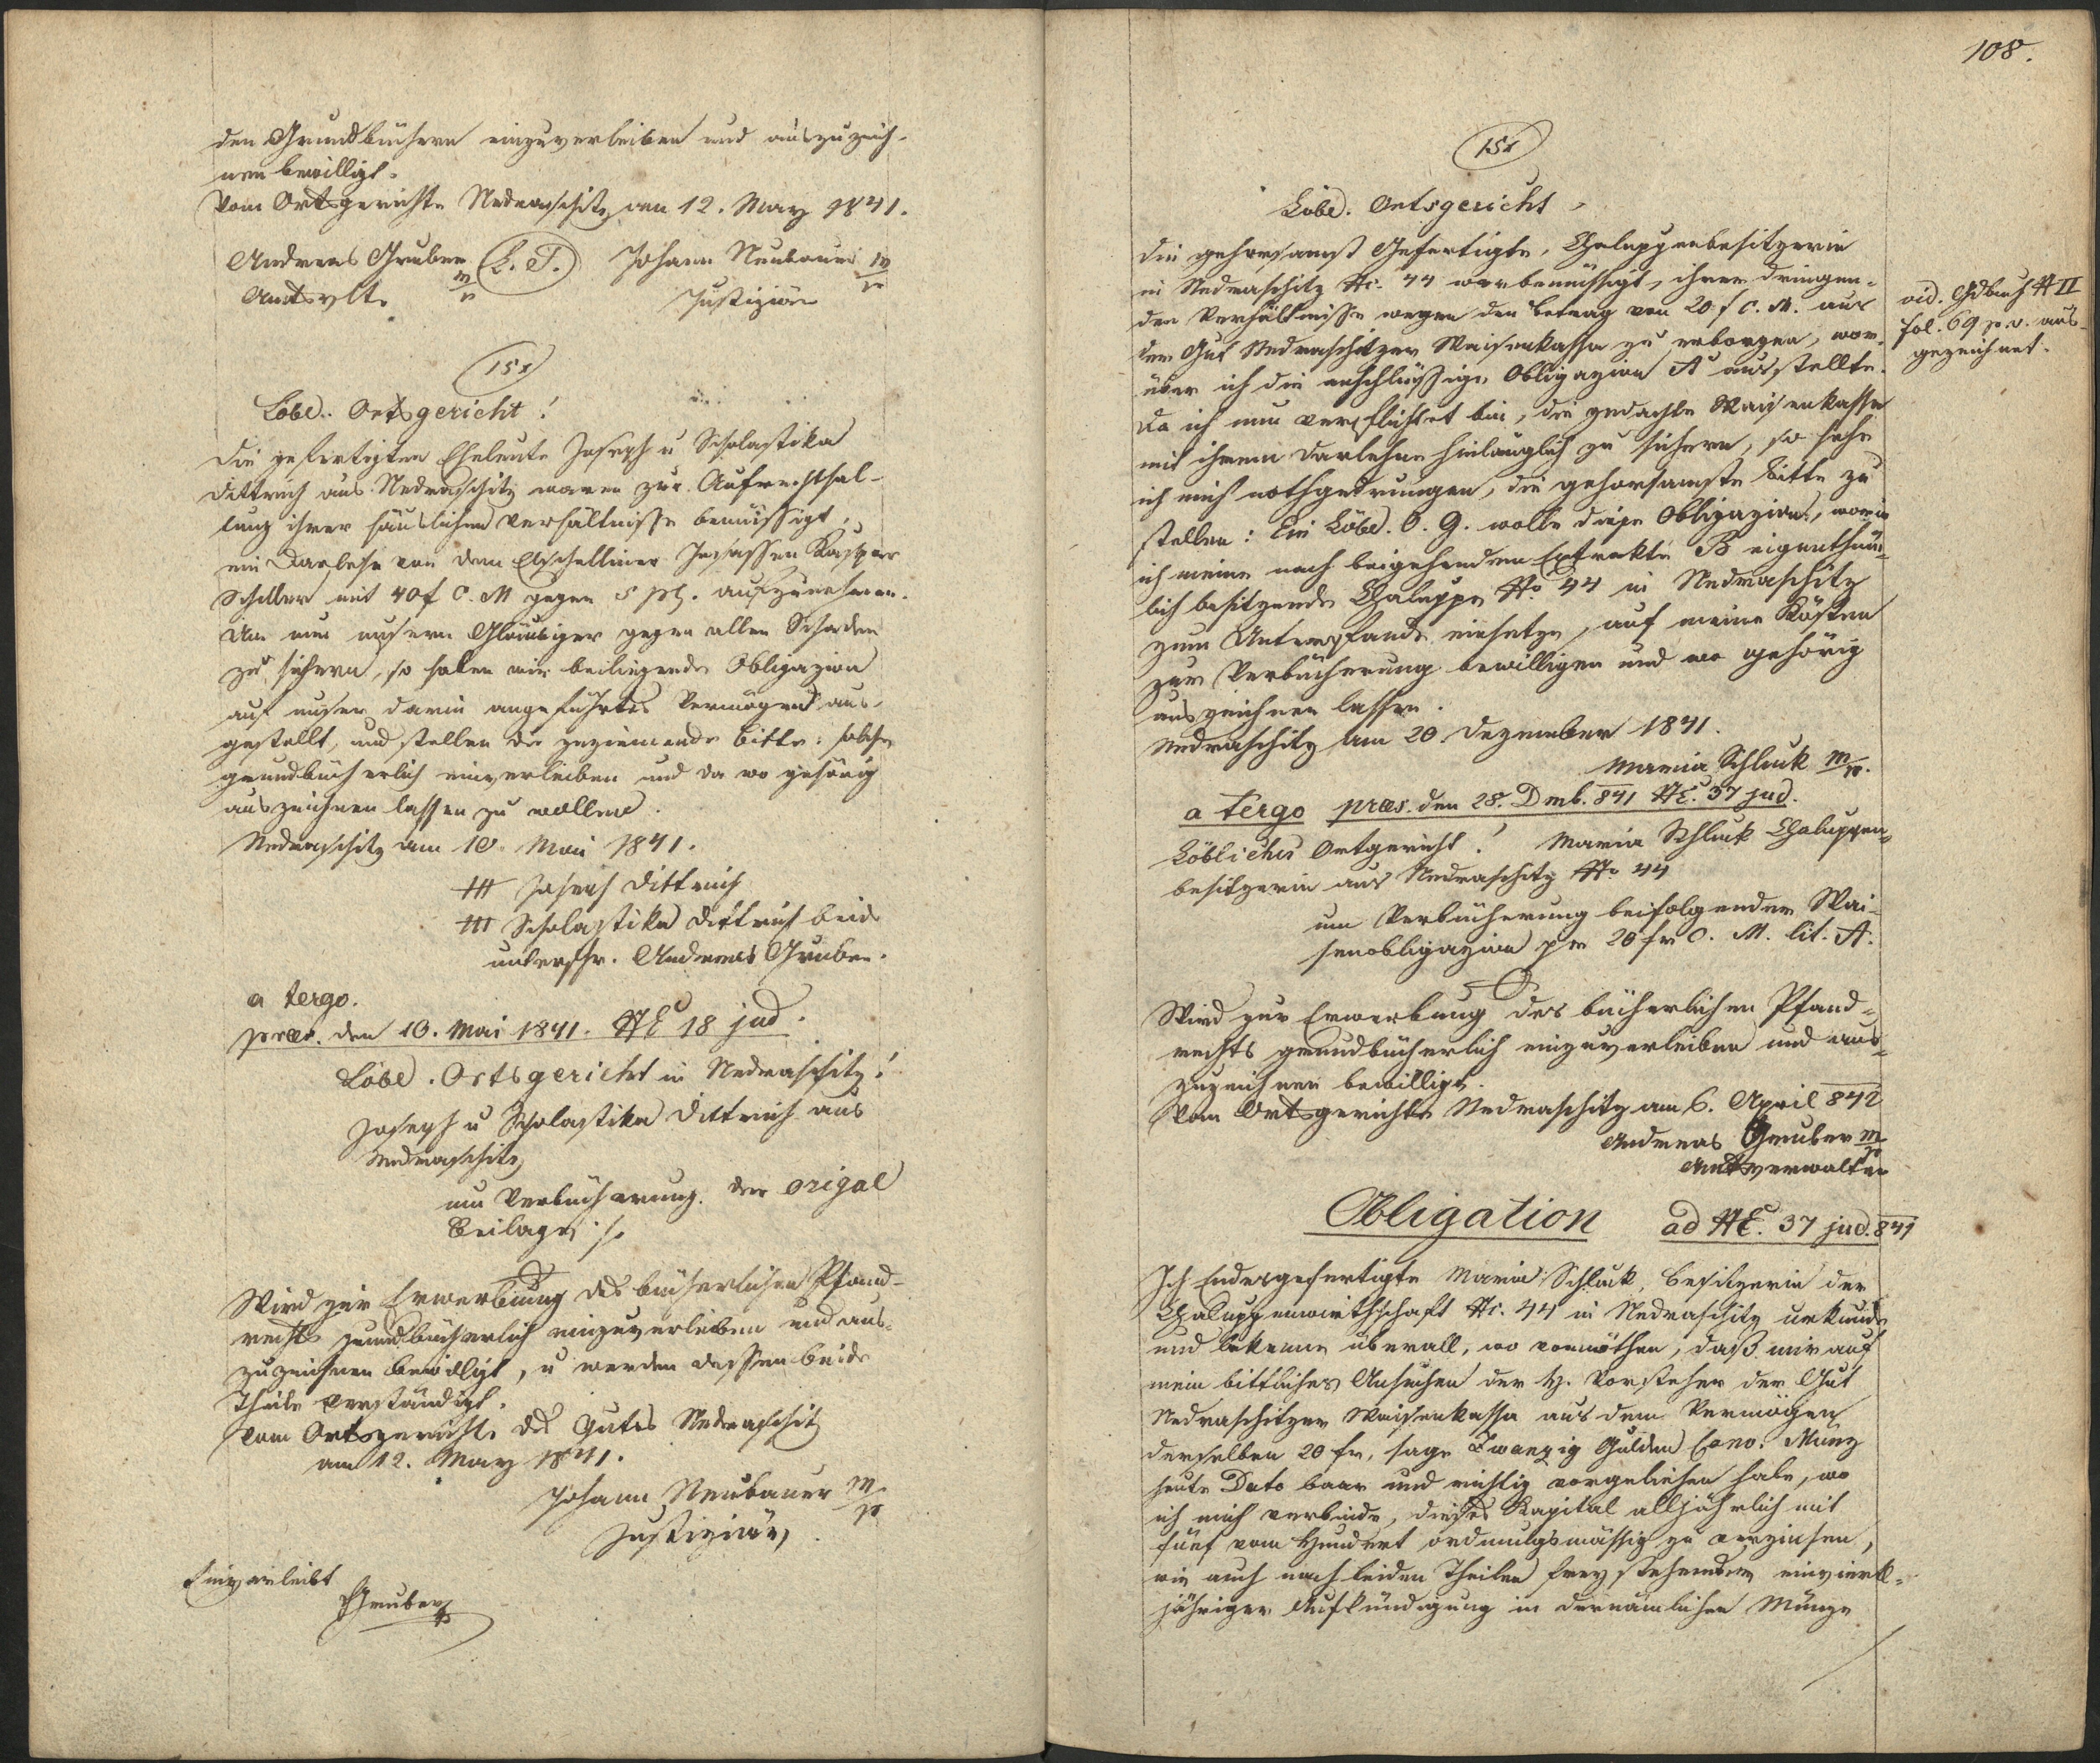 den Grundbüchern einzuverleiben und auszuzeich-
nen bewilligt.
Vom Ortsgerichte Nedraschitz am 12. May 1841.
Andreas Gruber m/p (L. S.) Johann Neubauer m/p
Amtsvlt. Justiziär
151
Löbl. Ortsgericht!
Die gefertigten Eheleute Joseph u Scholastika
Dittrich aus Nedraschitz waren zur Aufrechthal-
tung ihrer häuslichen Verhältnisse bemüssigt,
ein Darlehn von dem Insassen Kaspar
Schiller mit 40 f C. M gegen 5 pCt. aufzunehmen.
Um nun unsern Gläubiger gegen allen Schaden
zu sichern, so haben wir beiliegende Obligazion
auf unser darin angeführtes Vermögen aus-
gestellt, und stellen die geziemende Bitte: solche
grundbücherlich einverleiben und da wo gehörig
auszeichnen lassen zu wollen.
Nedraschitz am 10. Mai 1841.
+++ Joseph Dittrich
+++ Scholastika Dittrich beide
unterschr. Andreas Gruber.
a tergo.
præs. den 10. Mai 1841. NE 18 jud.
Löbl. Ortsgericht in Nedraschitz!
Joseph u Scholastika Dittrich aus
Nedraschitz
um Verbücherung der origal
Beilage ./.
Wird zur Erwerbung des bücherlichen Pfand-
rechts grundbücherlich einzuverleiben und aus-
zuzeichnen bewilligt, u werden dessen beide
Theile verständigt.
Vom Ortsgerichte des Gutes Nedraschitz
am 12. May 1841.
Johann Neubauer m/p
Justiziär.
Einverleibt
Gruber
108.
151
Löbl. Ortsgericht
Die gehorsamst Gefertigte, Chaluppenbesitzerin
in Nedraschitz Nc. 44 war bemüssigt, ihrer dringen-
den Verhältnisse wegen den Betrag von 20 f C. M. aus
der Gut Nedraschitzer Waisenkassa zu erborgen, wor-
über ich die anschlüssige Obligazion A ausstellte.
Da ich nun verpflichtet bin, die gedachte Waisenkasse
mit ihrem Darlehne hinlänglich zu sichern, so sehe
ich mich nothgedrungen, die gehorsamste Bitte zu
stellen: Ein Löbl. O. G. wolle diese Obligazion, worin
ich meine nach beigehendem Extrakte B eigenthüm-
lich besitzende Chaluppe No 44 in Nedraschitz
zum Unterpfande einsetze, auf meine Kösten
zur Verbücherung bewilligen und wo gehörig
auszeichnen lassen.
Nedraschitz am 20. Dezember 1841.
Maria Schluk m/p.
vid. Gdbuch N II
fol. 69 p. v. aus-
gezeichnet.
a tergo præs. den 28. Dmb. 841 NE. 37 jud.
Löbliches Ortgericht! Maria Schluk Chaluppen-
besitzerin aus Nedraschitz No 44
um Verbücherung beifolgender Wai-
senobligazion pr 20 fr C. M. lit. A.
Wird zur Erwerbung des bücherlichen Pfand-
rechts grundbücherlich einzuverleiben und aus-
zuzeichnen bewilligt.
Vom Ortsgerichte Nedraschitz am 6. April 842
Andreas Gruber m/p
Amtsverwalter
Obligation ad NE. 37 jud. 841
Ich Endesgefertigte Maria Schluk, Besitzerin der
Chaluppenwirthschaft Nc. 44 in Nedraschitz urkunde
und bekenne überall, wo vonnöthen, daß mir auf
mein bittliches Ansuchen der H. Vorsteher der Gut
Nedraschitzer Waisenkassa aus dem Vermögen
derselben 20 fr, sage Zwanzig Gulden Conv. Münz
heute Dato baar und richtig vorgeliehen habe, wo
ich mich verbinde, dieses Kapital alljährlich mit
fünf vom Hundert ordnungsmässig zu verzinsen,
wie auch nach beiden Theilen frey stehender einviertl-
jähriger Aufkündigung in der nämlichen Münze